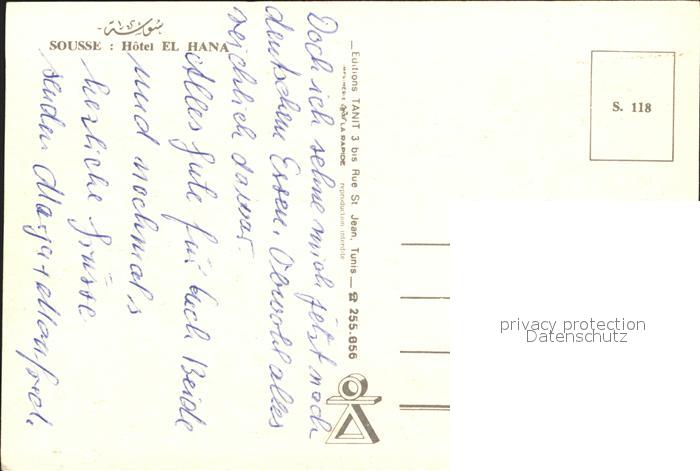 سوسة
SOUSSE : Hôtel EL HANA
Doch ich sehne mich jetzt nach
deutschem Essen. Obwohl alles
reichlich da war.
Alles Gute für Euch Beide
und nochmals
herzliche Grüsse
senden Marga + Manfred.
Editions TANIT 3 bis Rue St Jean, Tunis — ☎ 255.856
LA RAPIDE
reproduction interdite
S. 118
privacy protection
Datenschutz